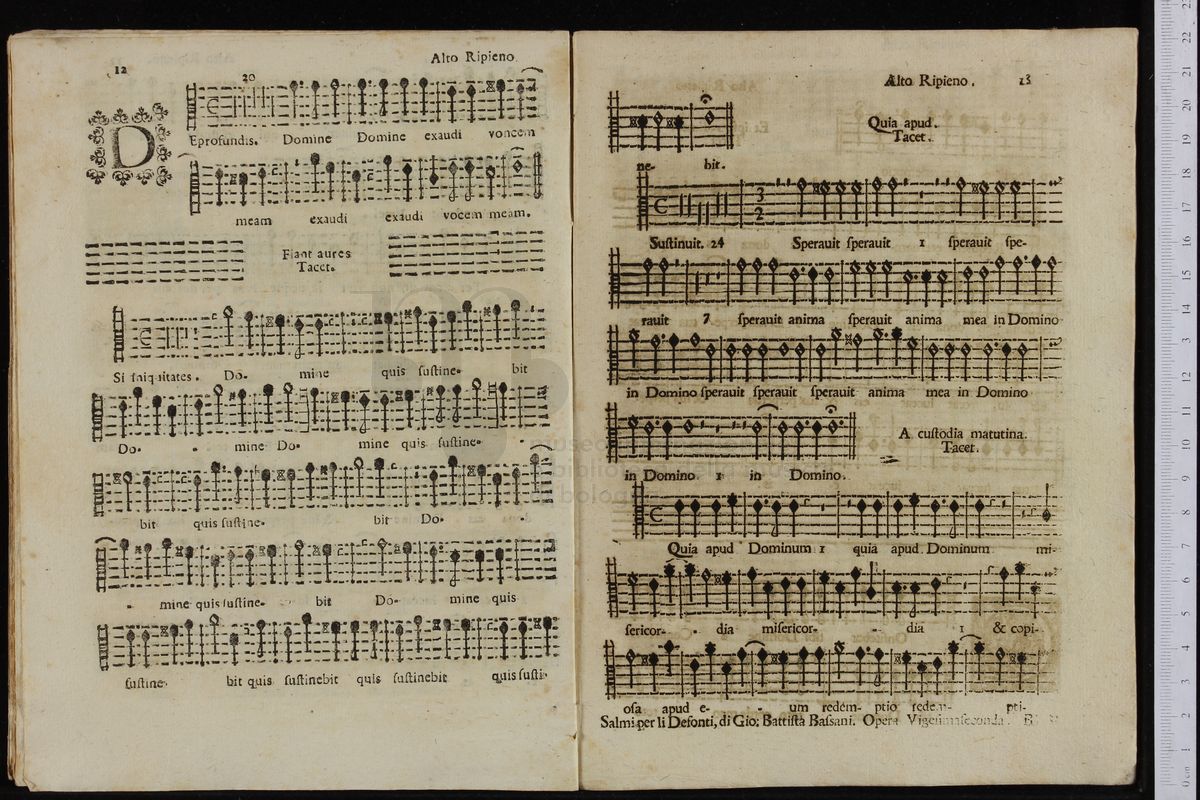 12
Alto Ripieno.
20
DEprofundis. Domine Domine exaudi voncem
meam exaudi exaudi vocem meam.
Fiant aures
Tacet.
Si iniquitates. Do- mine quis sustine- bit
Do- - mine Do- mine quis sustine- -
bit quis sustine- bit Do-
- mine quis sustine- bit Do- mine quis
sustine- bit quis sustinebit quis sustinebit quis susti-
Alto Ripieno. 13
ne- bit.
Quia apud.
Tacet.
Sustinuit. 24 Speravit speravit 1 speravit spe-
ravit 7 speravit anima speravit anima mea in Domino
in Domino speravit speravit speravit anima mea in Domino
in Domino 1 in Domino.
A custodia matutina.
Tacet.
Quia apud Dominum 1 quia apud Dominum mi-
sericor- - dia misericor- - dia 1 & copi-
osa apud e- - um redem- ptio redem- pti-
Salmi per li Defonti, di Gio: Battista Bassani. Opera Vigesimaseconda. B